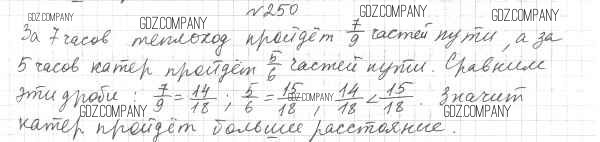 №250
За 7 часов теплоход пройдёт 7/9 частей пути, а за
5 часов катер пройдёт 5/6 частей пути. Сравним
эти дроби: 7/9 = 14/18; 5/6 = 15/18, 14/18 < 15/18. Значит
катер пройдёт большее расстояние.
GDZ.COMPANY
GDZ.COMPANY
GDZ.COMPANY
GDZ.COMPANY
GDZ.COMPANY
GDZ.COMPANY
GDZ.COMPANY